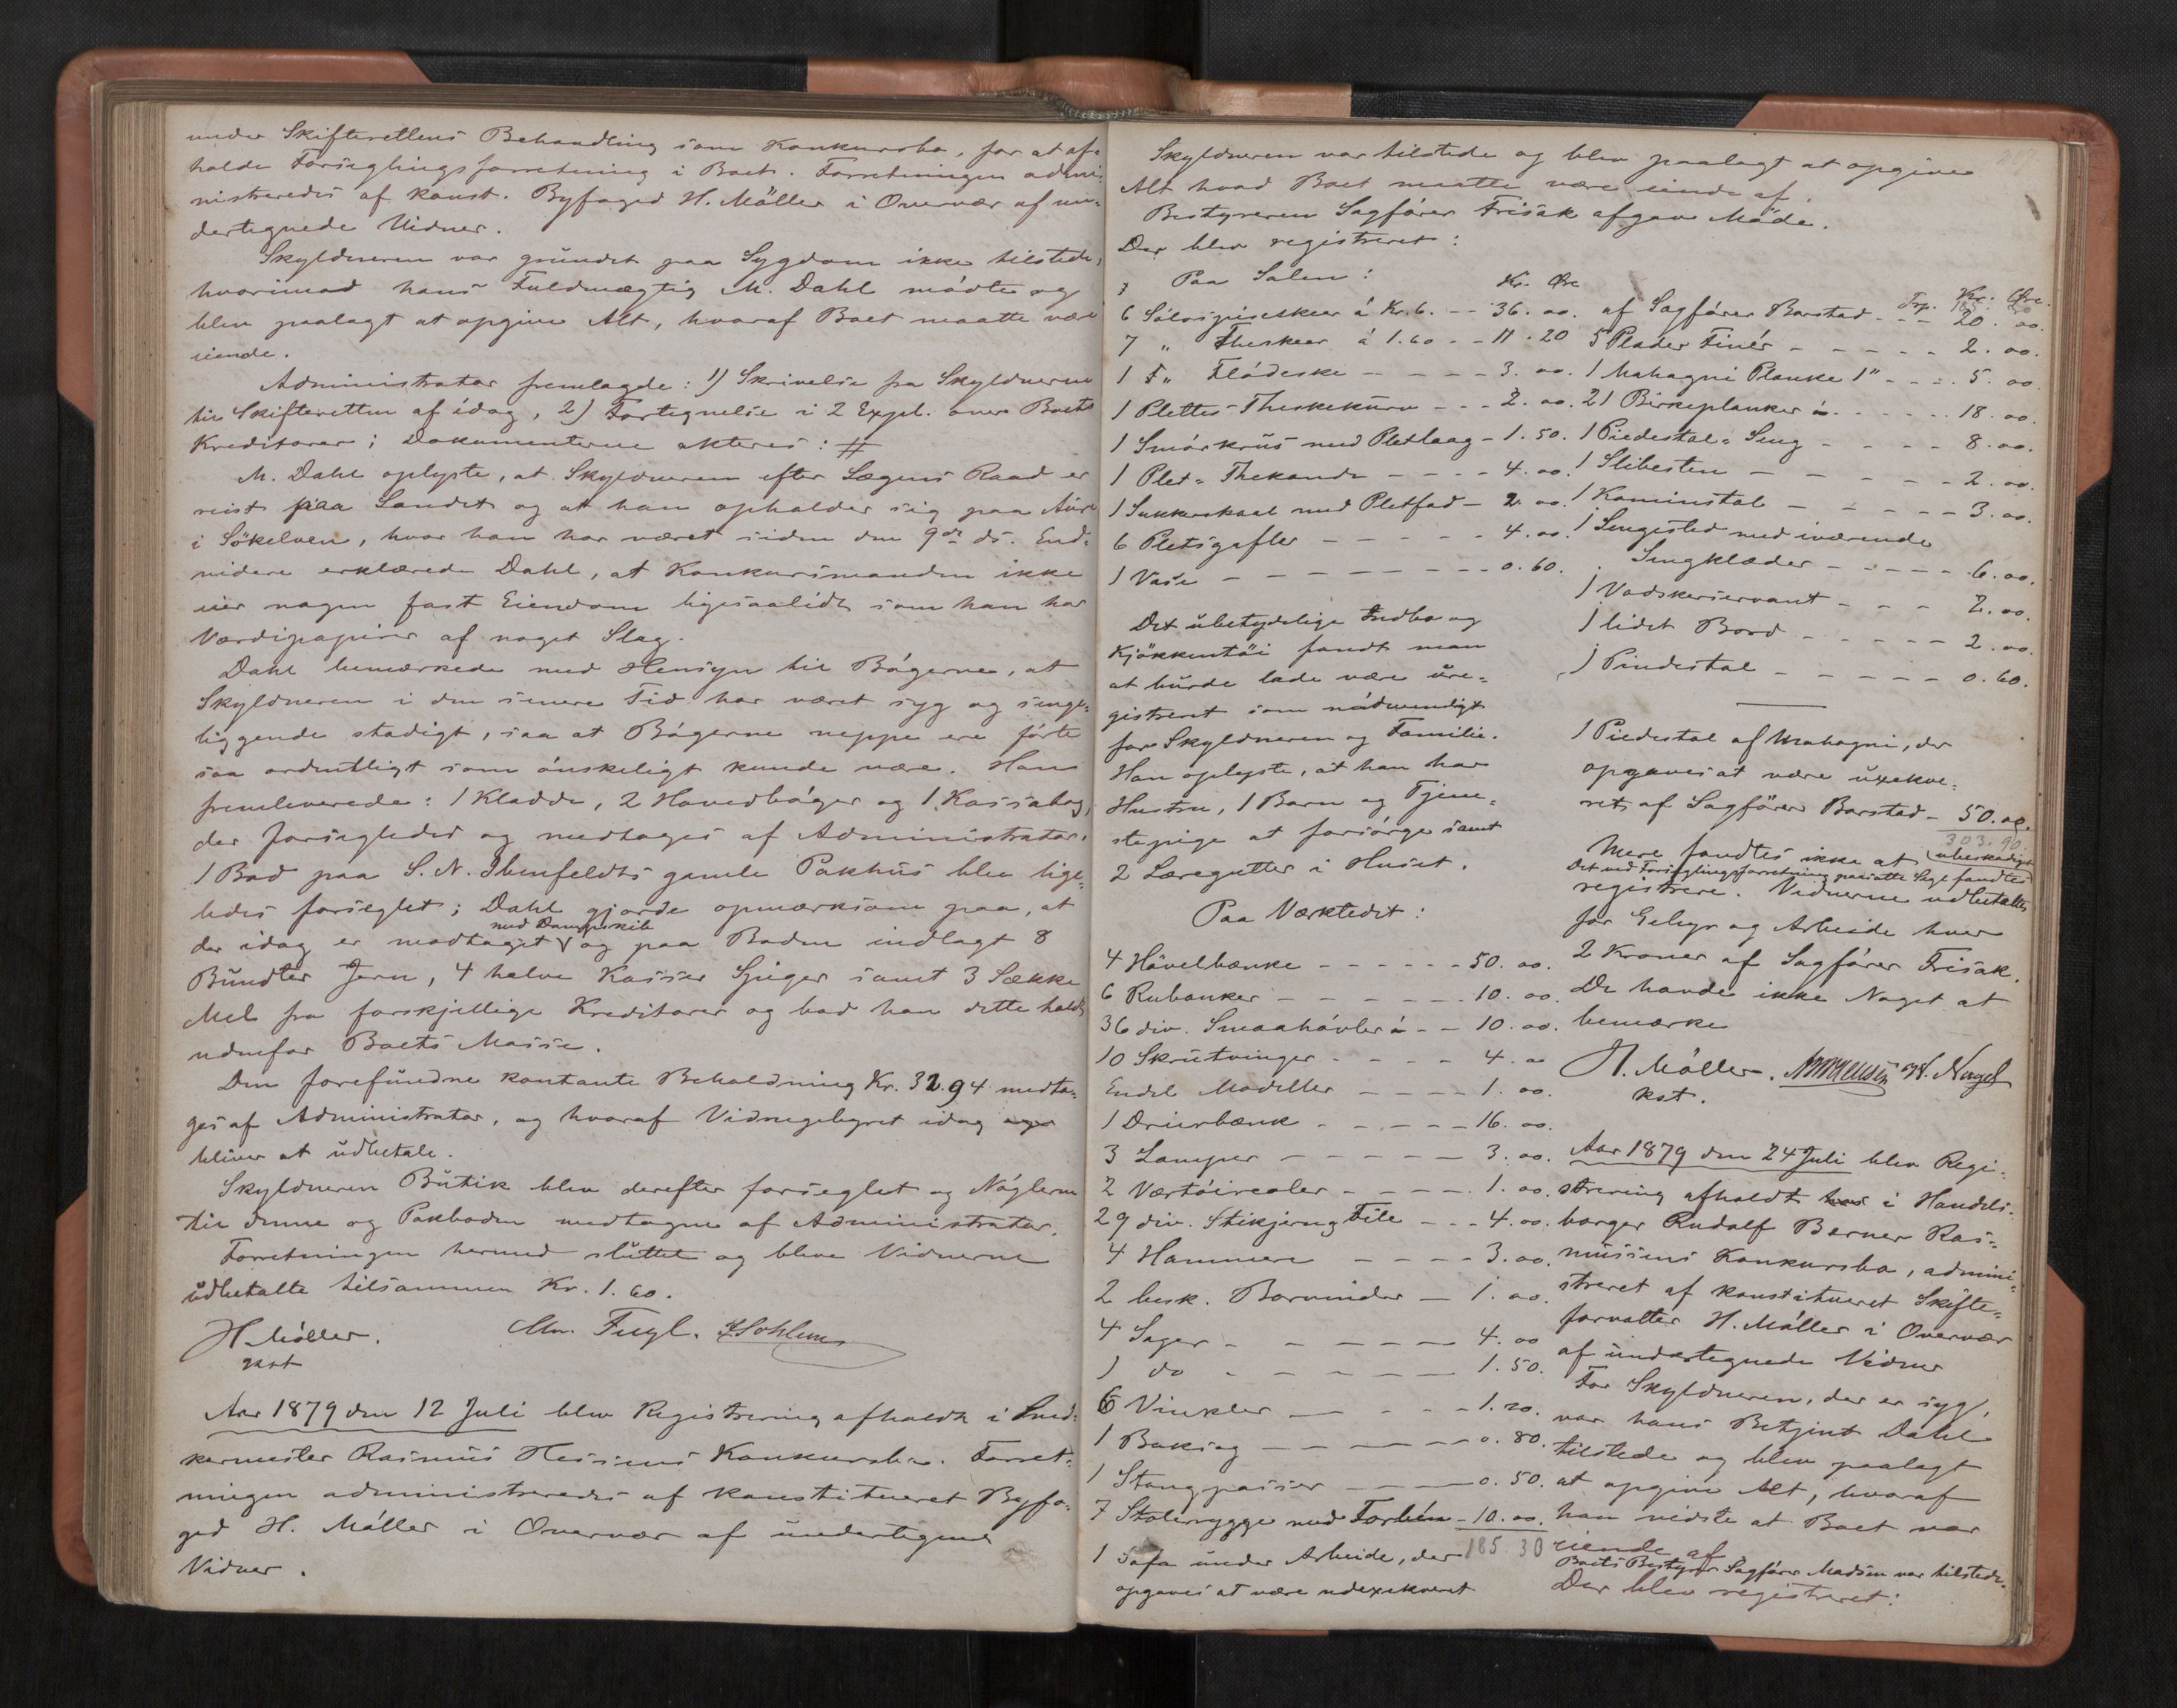 under Skifterettens Behandling som Konkursbo, for at af-
holde Forseglingsforretning i Boet. Forretningen admi-
nistreredes af konst. Byfoged H. Möller i Overvær af un-
dertegnede Vidner.
Skyldneren var grundet paa Sygdom ikke tilstede,
hvorimod hans Fuldmægtig M. Dahl mødte og
blev paalagt at opgive Alt, hvoraf Boet maatte være
eiende.
Administrator fremlagde: 1) Skrivelse fra Skyldneren
til Skifteretten af idag, 2) Fortegnelse i 2 Expl. over Boets
Kreditorer; Dokumenterne akteres: #
M. Dahl oplyste, at Skyldneren efter Lægens Raad er
reist paa Landet og at han opholder sig paa Aure
i Sökelven, hvor han har været siden den 9de ds. End-
videre erklærede Dahl, at Konkursmanden ikke
eier nogen fast Eiendom ligesaalidt som han har
Værdipapirer af noget Slag.
Dahl bemærkede med Hensyn til Bøgerne, at
Skyldneren i den senere Tid har været syg og senge-
liggende stadigt, saa at Bøgerne neppe ere førte
saa ordentligt som ønskeligt kunde være. Han
fremleverede: 1 Kladde, 2 Hovedbøger og 1 Kassabog,
der forsegledes og modtoges af Administrator.
1 Bod paa S. N. Ibenfeldts gamle Pakhus blev lige-
ledes forseglet; Dahl gjorde opmærksom paa, at
med Dampskib
der idag er modtaget og paa Boden indlagt 8
Bundter Jern, 4 halve Kasser Spiger samt 3 Sække
Mel fra forskjellige Kreditorer og bad han dette holdt
udenfor Boets Masse.
Den forefundne kontante Beholdning Kr. 32.94 modto-
ges af Administrator, og hvoraf Vidnegebyret idag
bliver at udbetale.
Skyldneren Butik blev derefter forseglet og Nøglerne
til denne og Pakboden modtagne af Administrator.
Forretningen hermed sluttet og bleve Vidnerne
udbetalte tilsammen Kr. 1.60.
H. Möller. Chr. Fugl.
kst
Aar 1879 den 12 Juli blev Registrering afholdt i Sned-
kermester Rasmus Hessens Konkursbo. Forret-
ningen administreredes af konstitueret Byfo-
ged H. Möller i Overvær af undertegnede
Vidner.
Skyldneren var tilstede og blev paalagt at opgive
Alt hvad Boet maatte være eiende af.
Bestyreren Sagfører Frisak afgav Møde.
Der blev registreret:
Paa Salen: Kr. Øre
6 Sølvspiseskeer á Kr. 6. -- 36. 00.
7 " Theskeer á 1.60 -- 11.20
1 F. Flødeske - - - - 3. 00.
1 Plettes-Theskekurv - - - 2. 00.
1 Smørkrus med Pletlaag - 1. 50.
1 Plet-Thekande - - - - 4. 00.
1 Sukkerskaal med Pletfad - 2. 00.
6 Pletsgafler - - - - - 4. 00.
1 Vase - - - - - - - 0. 60.
Det ubetydelige Indbo og
Kjøkkentøi fandt man
at burde lade være ure-
gistreret som nødvendigt
for Skyldneren og Familie.
Han oplyste, at han har
Hustru, 1 Barn og Tjene-
stepige at forsørge samt
2 Læregutter i Huset.
Paa Værktedet:
4 Hövelbænke - - - - - 50. 00.
6 Rubanker - - - - - - 10. 00.
36 div. Smaahøvler á - - 10. 00.
10 Skrutvinger - - - - 4. 00
Endel Modeller - - - - 1. 00.
1 Dreierbænk - - - - - 16. 00.
3 Lamper - - - - - - 3. 00.
2 Værtøirealer - - - - 1. 00.
29 div. Stikjern og File - - - 4. 00.
4 Hammere - - - - 3. 00.
2 besk. Borvinder - 1. 00.
4 Sager - - - - - - 4. 00
1 do - - - - - - 1. 50.
6 Vinkler - - - - 1. 20.
1 Baksag - - - - - 0. 80.
1 Stangpasser - - - - 0. 50.
7 Stolerygge med Forbén - 10. 00.
185. 30
1 Sofa under Arbeide, der
opgaves at være udexekveret
Trp. Kr. Øre.
af Sagfører Barstad - - - 20. 00.
5 Plader Finér - - - - - 2. 00.
1 Mahagni Planke 1" - - - 5. 00
21 Birkeplanker á - - - - 18. 00.
1 Piedestal-Seng - - - - 8. 00.
1 Slibesten - - - - - - 2. 00.
1 Kaminstol - - - - - 3. 00.
1 Sengested med iværende
Sengklæder - - - - - 6. 00.
1 Vadskerservant - - - 2. 00.
1 lidet Bord - - - - - 2. 00.
1 Pindestol - - - - - 0. 60.
1 Piedestal af Mahogni, der
opgaves at være uxekve-
ret af Sagfører Barstad - 50. 00.
303. 90
Mere fandtes ikke at
Det ved Forseglingsforretning paasatte Segl fandtes ubeskadiget
registrere. Vidnerne udbetaltes
for Gebyr og Arbeide hver
2 Kroner af Sagfører Frisak.
De havde ikke Noget at
bemærke
H. Möller. W. Nagel
kst.
Aar 1879 den 24 Juli blev Regi-
strering afholdt i Handels-
borger Rudolf Berner Ras-
mussens Konkursbo, admini-
streret af konstitueret Skifte-
forvalter H. Møller i Overvær
af undertegnede Vidner
For Skyldneren, der er syg,
var hans Betjent Dahl
tilstede og blev paalagt
at opgive Alt, hvoraf
han vidste at Boet var
eiende af
Boets Bestyrer Sagfører Madsen var tilstede.
Der blev registreret: